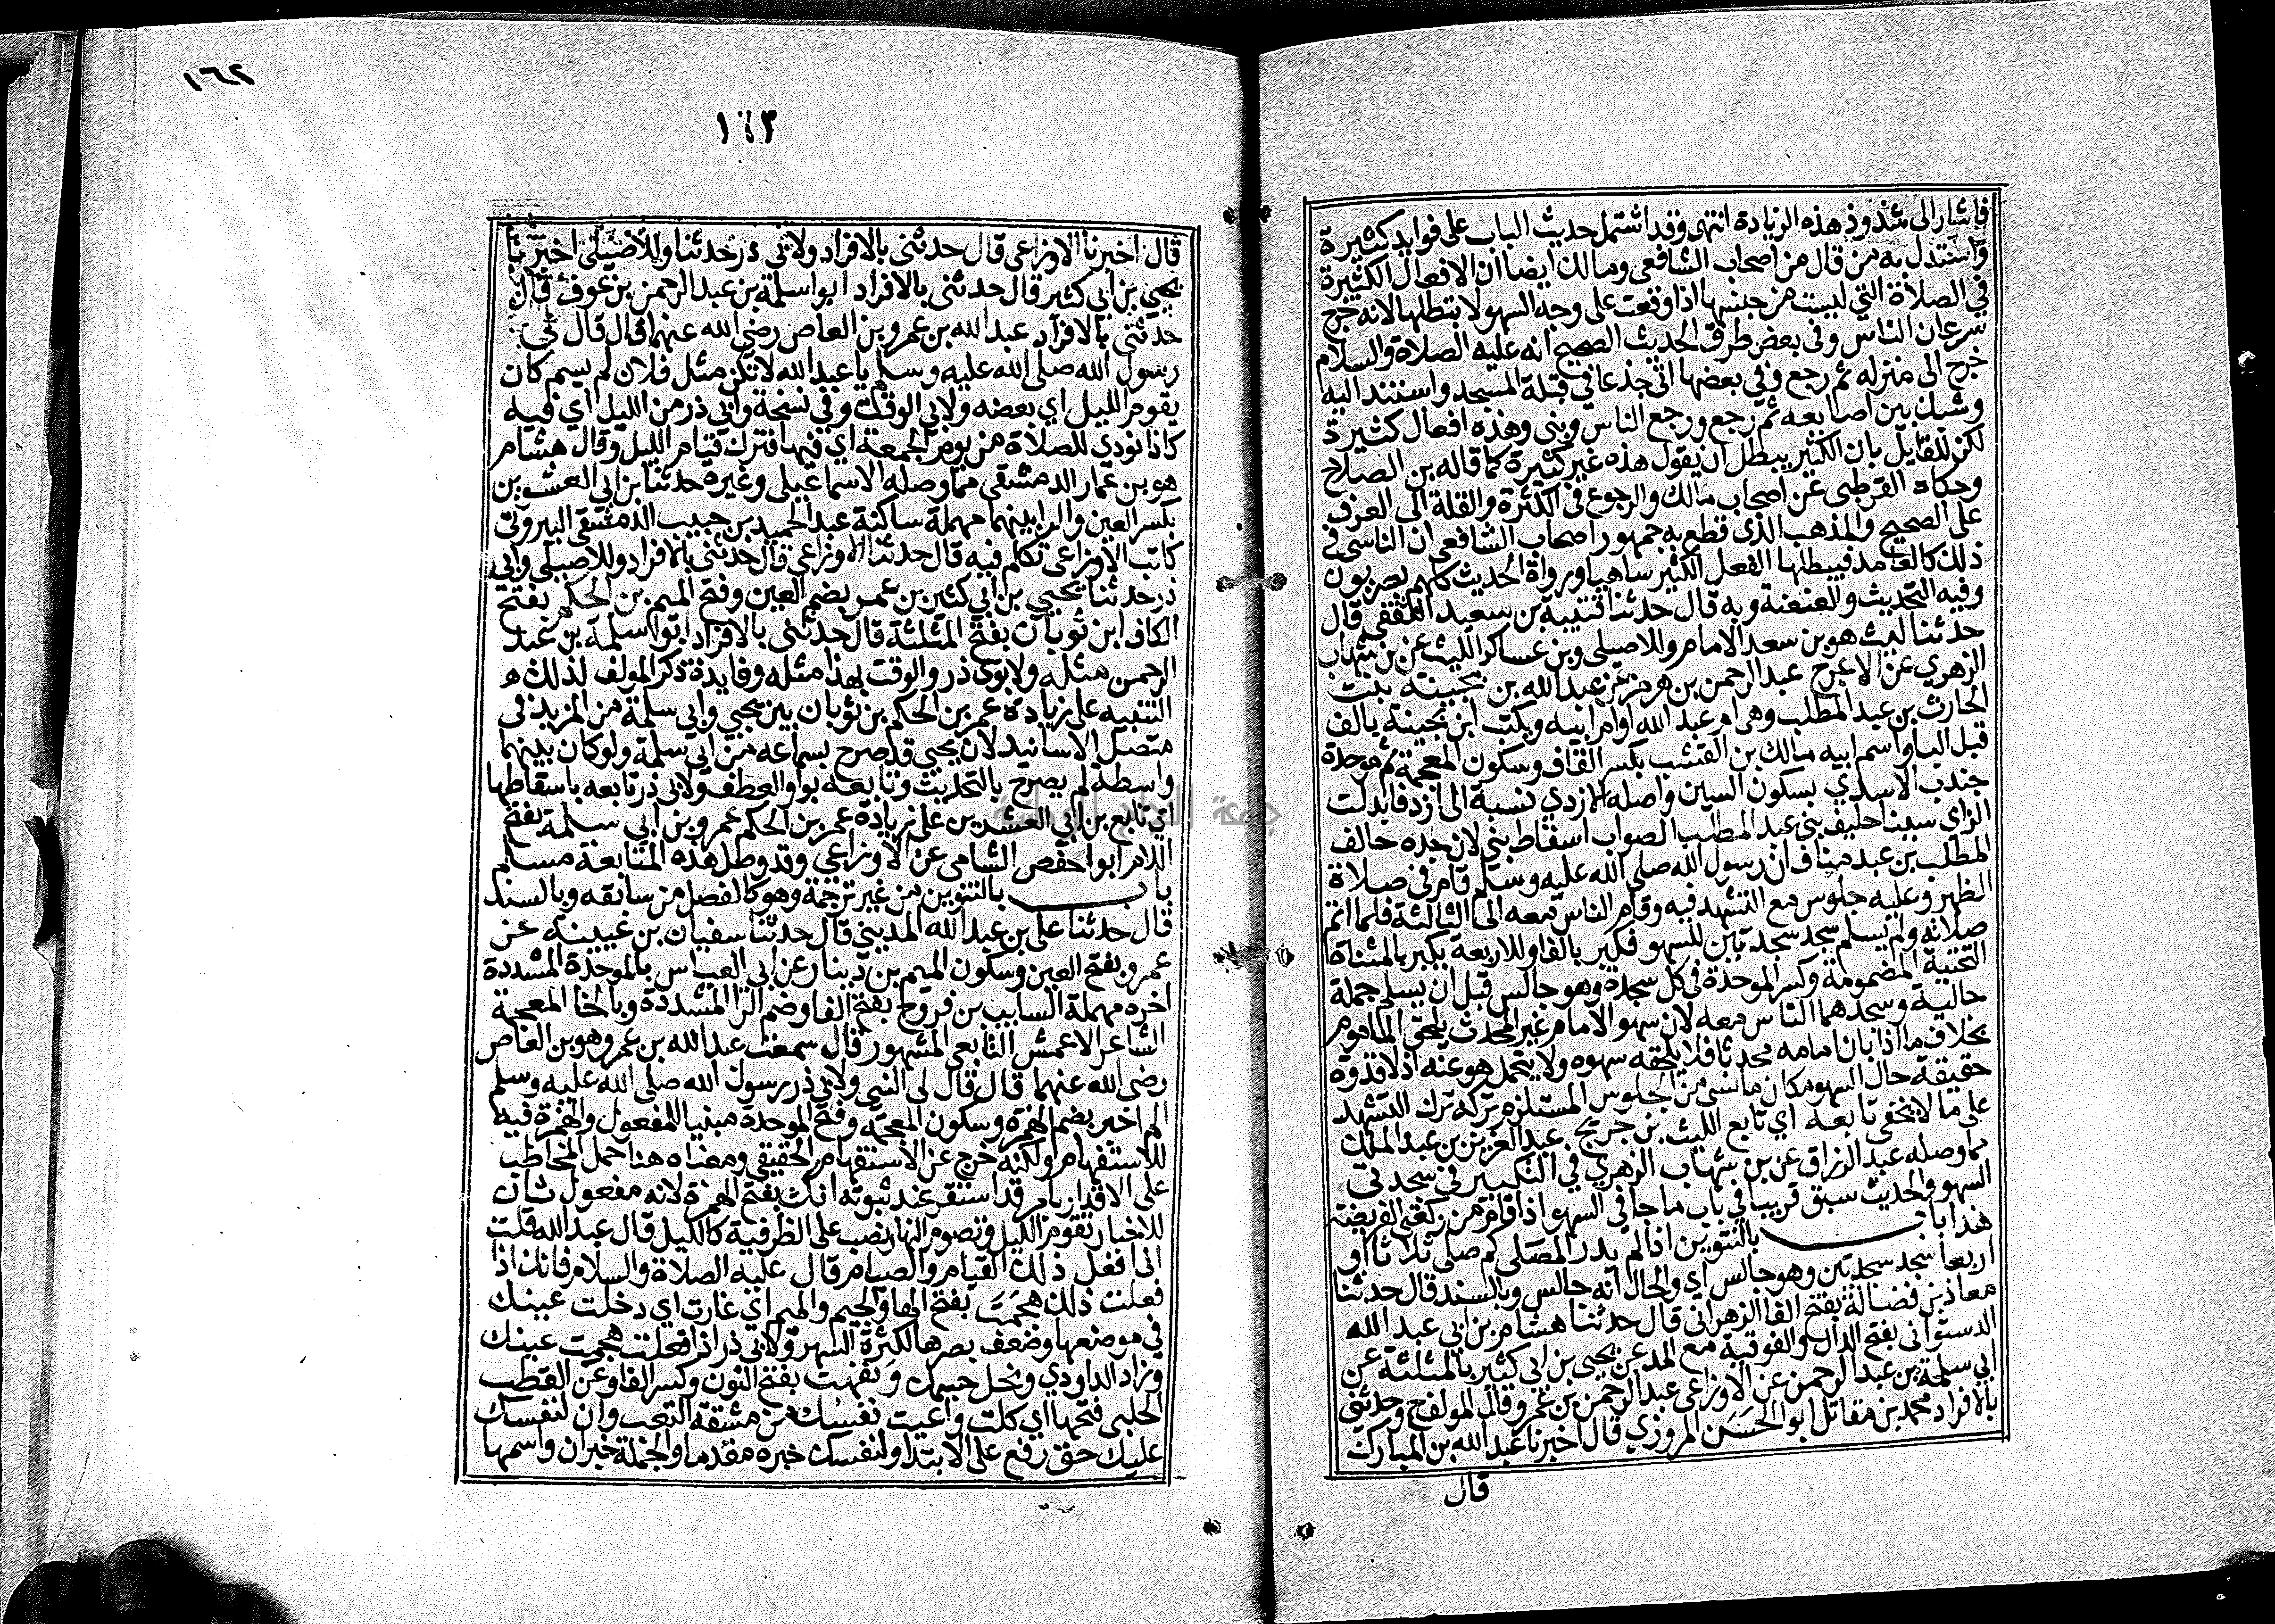 فاشار الى شذوذ هذه الزيادة انتهى وقد اشتمل حديث الباب على فوايد كثيرة
واستدل به من قال من اصحاب الشافعي ومالك ايضا ان الافعال الكثيرة
في الصلاة التي ليست من جنسها اذا وقعت على وجه السهو لا تبطلها لانه خرج
سرعان الناس وفى بعض طرق الحديث الصحيح انه عليه الصلاة والسلام
خرج الى منزله ثم رجع وفى بعضها اتى جذعا في قبلة المسجد واستند اليه
وشبك بين اصابعه ثم رجع ورجع الناس وبنى وهذه افعال كثيرة
لكن للقايل بان الكثير يبطل ان يقول هذه غير كثيرة كما قاله بن الصلاح
وحكاه القرطبى عن اصحاب مالك والرجوع فى الكثرة والقلة الى العرف
على الصحيح والمذهب الذى قطع به جمهور اصحاب الشافعي ان الناسى فى
ذلك كالعامد فيبطلها الفعل الكثير ساهيا ورواة الحديث كلهم بصريون
وفيه التحديث والعنعنة وبه قال حدثنا قتيبة بن سعيد الثقفي قال
حدثنا ليث هو بن سعد الامام وللاصيلى وبن عساكر الليث عن بن شهاب
الزهري عن الاعرج عبد الرحمن بن هرمز عن عبد الله بن بحينة بنت
الحارث بن عبد المطلب وهى ام عبد الله او ام ابيه ويكتب ابن بحينة بالف
قبل البا واسم ابيه مالك بن القشب بكسر القاف وسكون المعجمة ثم موحدة
جندب الاسدي بسكون السين واصله الازدي نسبة الى ازد فابدلت
الزاى سينا حليف بنى عبد المطلب الصواب اسقاط بنى لان جده حالف
المطلب بن عبد مناف ان رسول الله صلى الله عليه وسلم قام فى صلاة
الظهر وعليه جلوس مع التشهد فيه وقام الناس معه الى الثالثة فلما اتم
صلاته ولم يسلم سجد سجدتين للسهو فكبر بالفا وللاربعة يكبر بالمثناة
التحتية المضمومة وكسر الموحدة فى كل سجدة وهو جالس قبل ان يسلم جملة
حالية وسجدهما الناس معه لان سهو الامام غير المحدث يلحق الماموم
بخلاف ما اذا بان امامه محدثا فلا يلحقه سهوه ولا يتحمل هو عنه اذ لا قدوة
حقيقة حال السهو مكان ما نسى من الجلوس المستلزم تركه ترك التشهد
على ما لا يخفى تابعه اي تابع الليث بن جريج عبد العزيز بن عبد الملك
مما وصله عبد الرزاق عن بن شهاب الزهري في التكبير فى سجدتى
السهو والحديث سبق قريبا في باب ما جا فى السهو اذا قام من ركعتى الفريضة
هذا باب بالتنوين اذا لم يدر المصلى كم صلى ثلاثا او
اربعا سجد سجدتين وهو جالس اي والحال انه جالس وبالسند قال حدثنا
معاذ بن فضالة بفتح الفا الزهرانى قال حدثنا هشام بن ابى عبد الله
الدستوانى بفتح الدال والفوقية مع المد عن يحيى بن ابى كثير بالمثلثة عن
ابى سلمة بن عبد الرحمن عن الاوزاعى عبد الرحمن بن عمرو وقال المولف ح وحدثنى
بالافراد محمد بن مقاتل ابو الحسن المروزي قال اخبرنا عبد الله بن المبارك
قال
١٦٢
١٦٣
قال اخبرنا الاوزاعى قال حدثنى بالافراد ولابى ذر حدثنا وللاصيلى اخبرنا
يحيى بن ابى كثير قال حدثنى بالافراد ابو سلمة بن عبد الرحمن بن عوف قال
حدثنى بالافراد عبد الله بن عمرو بن العاص رضى الله عنهما قال قال لى
رسول الله صلى الله عليه وسلم يا عبد الله لا تكن مثل فلان لم يسم كان
يقوم الليل اي بعضه ولابى الوقت وفي نسخة وابى ذر من الليل اي فيه
كاذا نودي للصلاة من يوم الجمعة اي فيها فترك قيام الليل وقال هشام
هو بن عمار الدمشقى مما وصله الاسماعيلى وغيره حدثنا بن ابى العشرين
بكسر العين والرا بينهما مهملة ساكنة عبد الحميد بن حبيب الدمشقى البيروتى
كاتب الاوزاعى تكلم فيه قال حدثنا الاوزاعى قال حدثنى بالافراد وللاصيلى وابى
ذر حدثنا يحيى بن ابى كثير بن عمر بضم العين وفتح الميم بن الحكم بفتح
الكاف ابن ثوبان بفتح المثلثة قال حدثنى بالافراد ابو سلمة بن عبد
الرحمن مثله ولابوى ذر والوقت بهذا مثله وفايدة ذكر المولف لذلك
التنبيه على زيادة عمر بن الحكم بن ثوبان بين يحيى وابى سلمة من المزيد فى
متصل الاسانيد لان يحيى قد صرح بسماعه من ابى سلمة ولو كان بينهما
واسطة لم يصرح بالتحديث وتابعه بواو العطف ولابى ذر تابعه باسقاطها
اي تابع بن ابى العشرين على زيادة عمر بن الحكم عمرو بن ابى سلمة بفتح
اللام ابو حفص الشامى عن الاوزاعي وقد وصل هذه المتابعة مسلم
باب بالتنوين من غير ترجمة وهو كالفصل من سابقه وبالسند
قال حدثنا على بن عبد الله المدينى قال حدثنا سفيان بن عيينة عن
عمرو بفتح العين وسكون الميم بن دينار عن ابى العباس بالموحدة المشددة
اخره مهملة السايب بن فروخ بفتح الفا وضم الرا المشددة وبالخا المعجمة
الشاعر الاعمش التابعى المشهور قال سمعت عبد الله بن عمرو هو بن العاص
رضى الله عنهما قال قال لى النبى ولابى ذر رسول الله صلى الله عليه وسلم
الم اخبر بضم الهمزة وسكون المعجمة وفتح الموحدة مبنيا للمفعول والهمزة فيه
للاستفهام ولكنه خرج عن الاستفهام الحقيقي ومعناه هنا حمل المخاطب
على الاقرار بامر قد استقر عنده ثبوته انك بفتح الهمزة لانه مفعول ثان
للاخبار تقوم الليل وتصوم النهار نصب على الظرفية كالليل قال عبد الله قلت
انى افعل ذلك القيام والصيام قال عليه الصلاة والسلام فانك اذا
فعلت ذلك هجمت بفتح الها والجيم والميم اي غارت اي دخلت عينك
في موضعها وضعف بصرها لكثرة السهر ولابى ذر اذا فعلت هجمت عينك
وزاد الداودي ونحل جسمك ونفهت بفتح النون وكسر الفا وعن القطب
الحلبى فتحها اي كلت واعيت نفسك من مشقة التعب وان لنفسك
عليك حق رفع على الابتدا ولنفسك خبره مقدما والجملة خبر ان واسمها